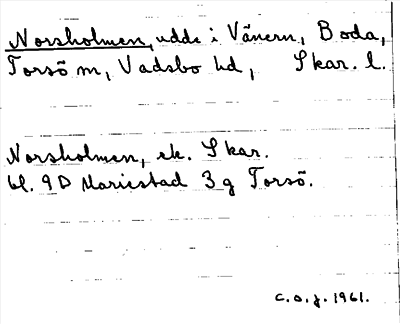 Norsholmen, udde i Vänern, Boda,
Torsö m, Vadsbo hd, Skar. l.
Norsholmen, ek. Skar.
bl. 9 D Mariestad 3 g Torsö.
C.O.J. 1961.